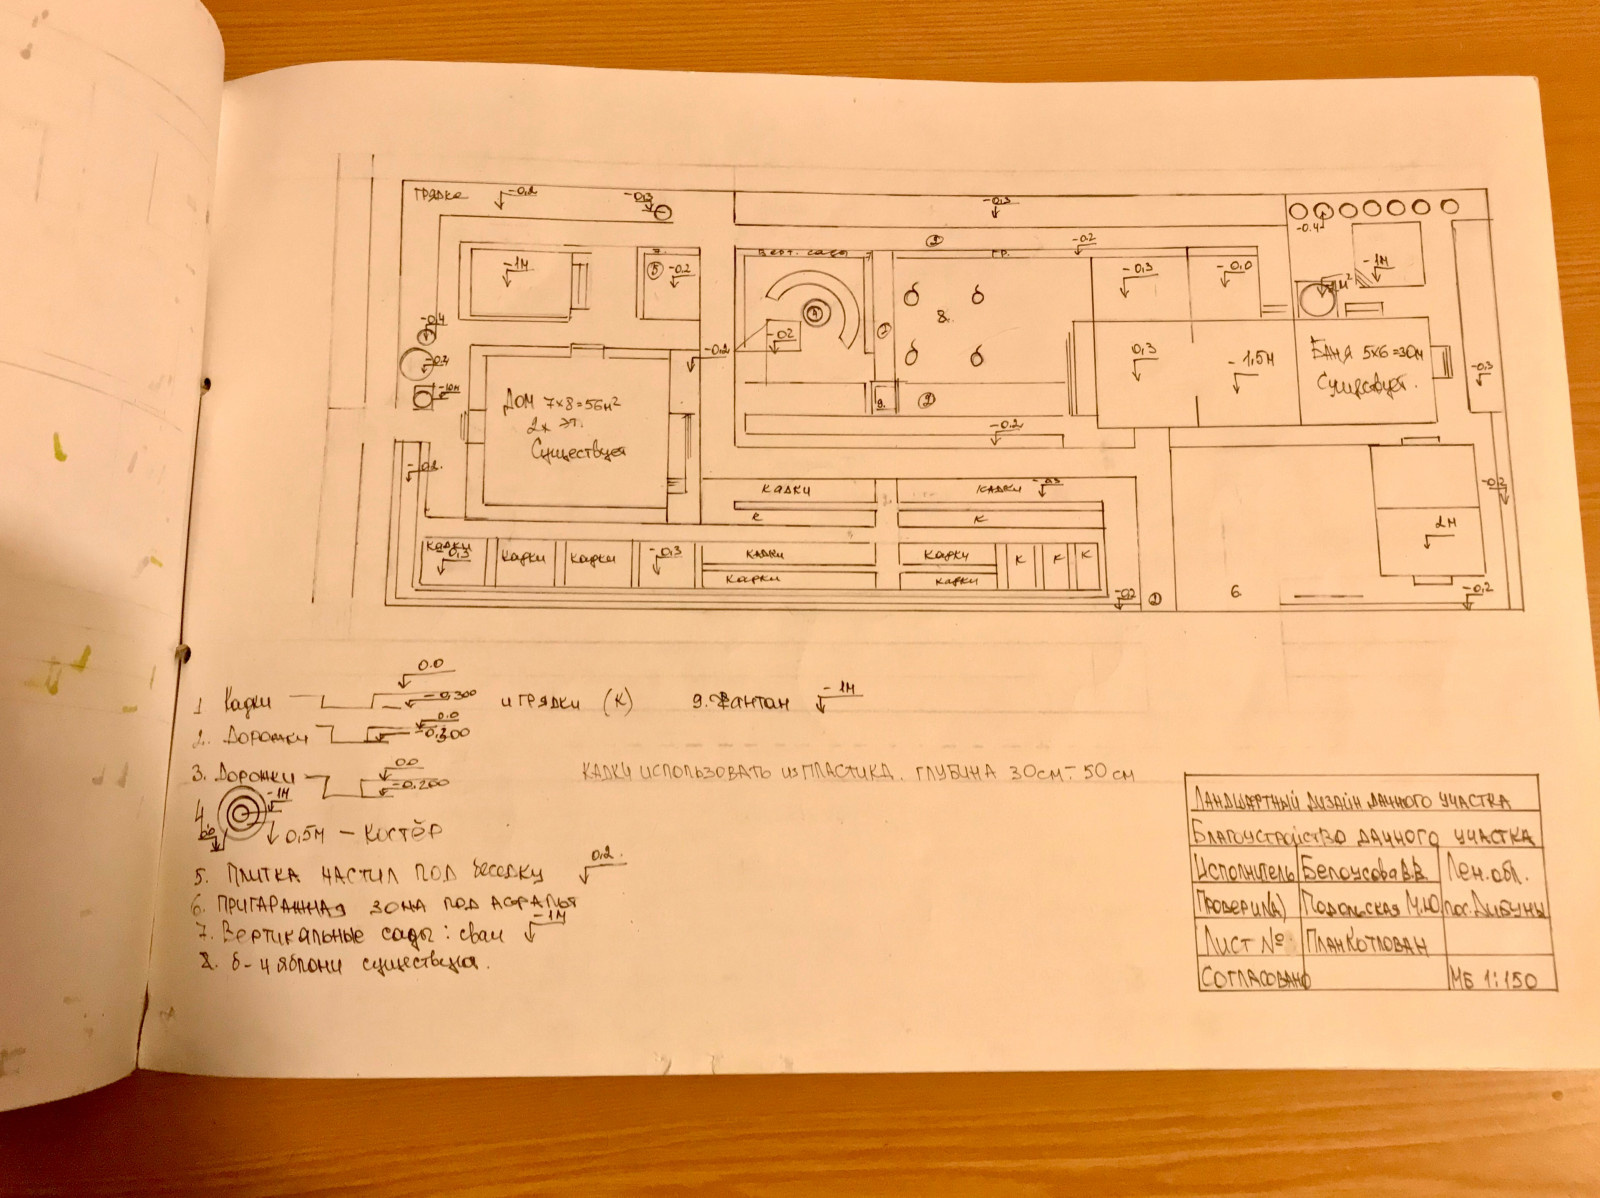 грядке -0,2 -0,3 -0,3
-0.4
-1м 5 -0.2 Верт. сады 7 2 гр. -0.2 -0.3 -0.0 -1м
4 8.
-0.4 -0.2 -0.2 0.3 -1,5м Баня 5х6=30м
Существует.
-0.3
Дом 7х8=56м²
2х эт.
Существует
9. 2
-0.2
-0.2
кадки кадки -0.3 -0.2
к к
2м
кадки -0,3 кадки кадки -0.3 кадки кадки к к к
кадки кадки
-0.2 2 6 -0,2
0.0
1 Кадки -0,300 и грядки (К) 9. Фантан -1м
0.0
2. Дорожки -0,300
0.0
3. Дорожки -0,200
4 -1м
0.0 0,5м – Костёр
5. Плитка настил под беседку 0,2.
6. Пригаражная зона под асфальт
7. Вертикальные сады: сваи -1м
8. б-4 яблони существует.
Кадки использовать из пластика. Глубина 30см-50см
Ландшафтный дизайн дачного участка
Благоустройство дачного участка
Исполнитель Белоусова В.В. Лен.обл.
Проверил(а) Подольская М.Ю. пос. Дибуны
Лист № План Котлован
Согласовано МБ 1:150